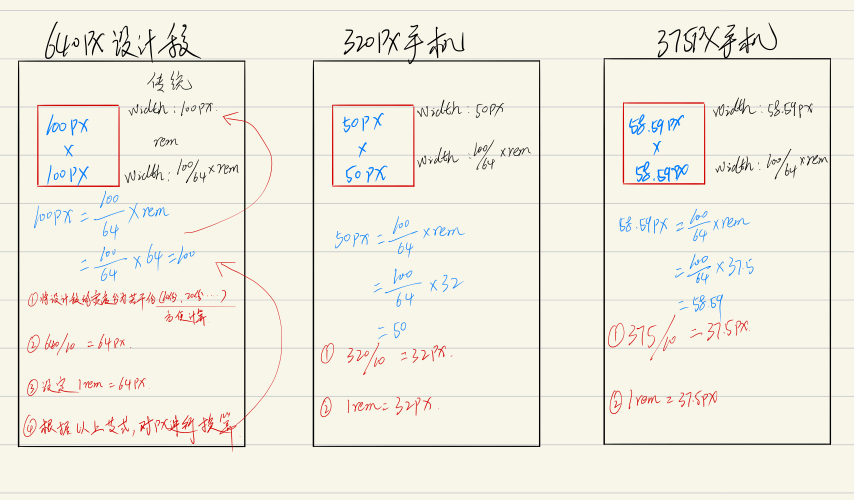 640PX设计稿
传统
100PX
X
100PX
width: 100px.
rem
width: 100/64 × rem
100px = 100/64 × rem
= 100/64 × 64 = 100
①将设计稿的宽度分为若干份(10份, 20份·····)
方便计算
② 640/10 = 64px.
③ 设定 1rem = 64px
④ 根据以上公式, 对PX进行换算
320PX手机
50PX
X
50PX
width: 50px
width: 100/64 × rem
50px = 100/64 × rem
= 100/64 × 32
= 50
① 320/10 = 32px.
② 1rem = 32px.
375PX手机
58.59PX
X
58.59PX
width: 58.59px
width: 100/64 × rem
58.59px = 100/64 × rem
= 100/64 × 37.5
= 58.59
① 375/10 = 37.5px.
② 1rem = 37.5px